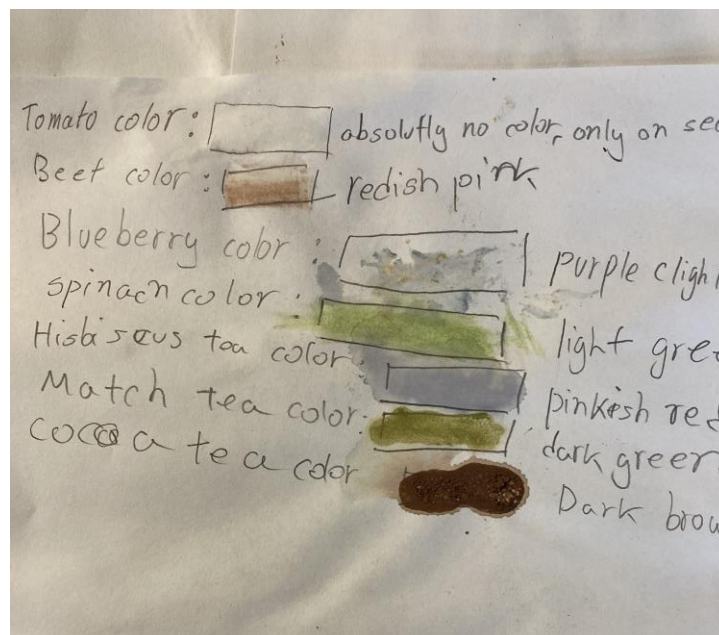 Tomato color: absolutly no color, only on see
Beet color: redish pink
Blueberry color: purple cligh
spinach color: light gre
Hisbiscus toa color. pinkish red
Match tea color: dark greer
cocoa tea color Dark brow